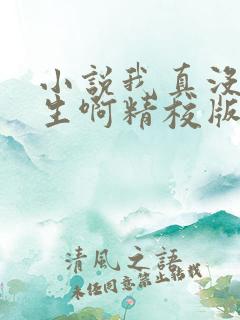 小說我真沒
生啊精校版
清風之語
未經同意禁止轉載